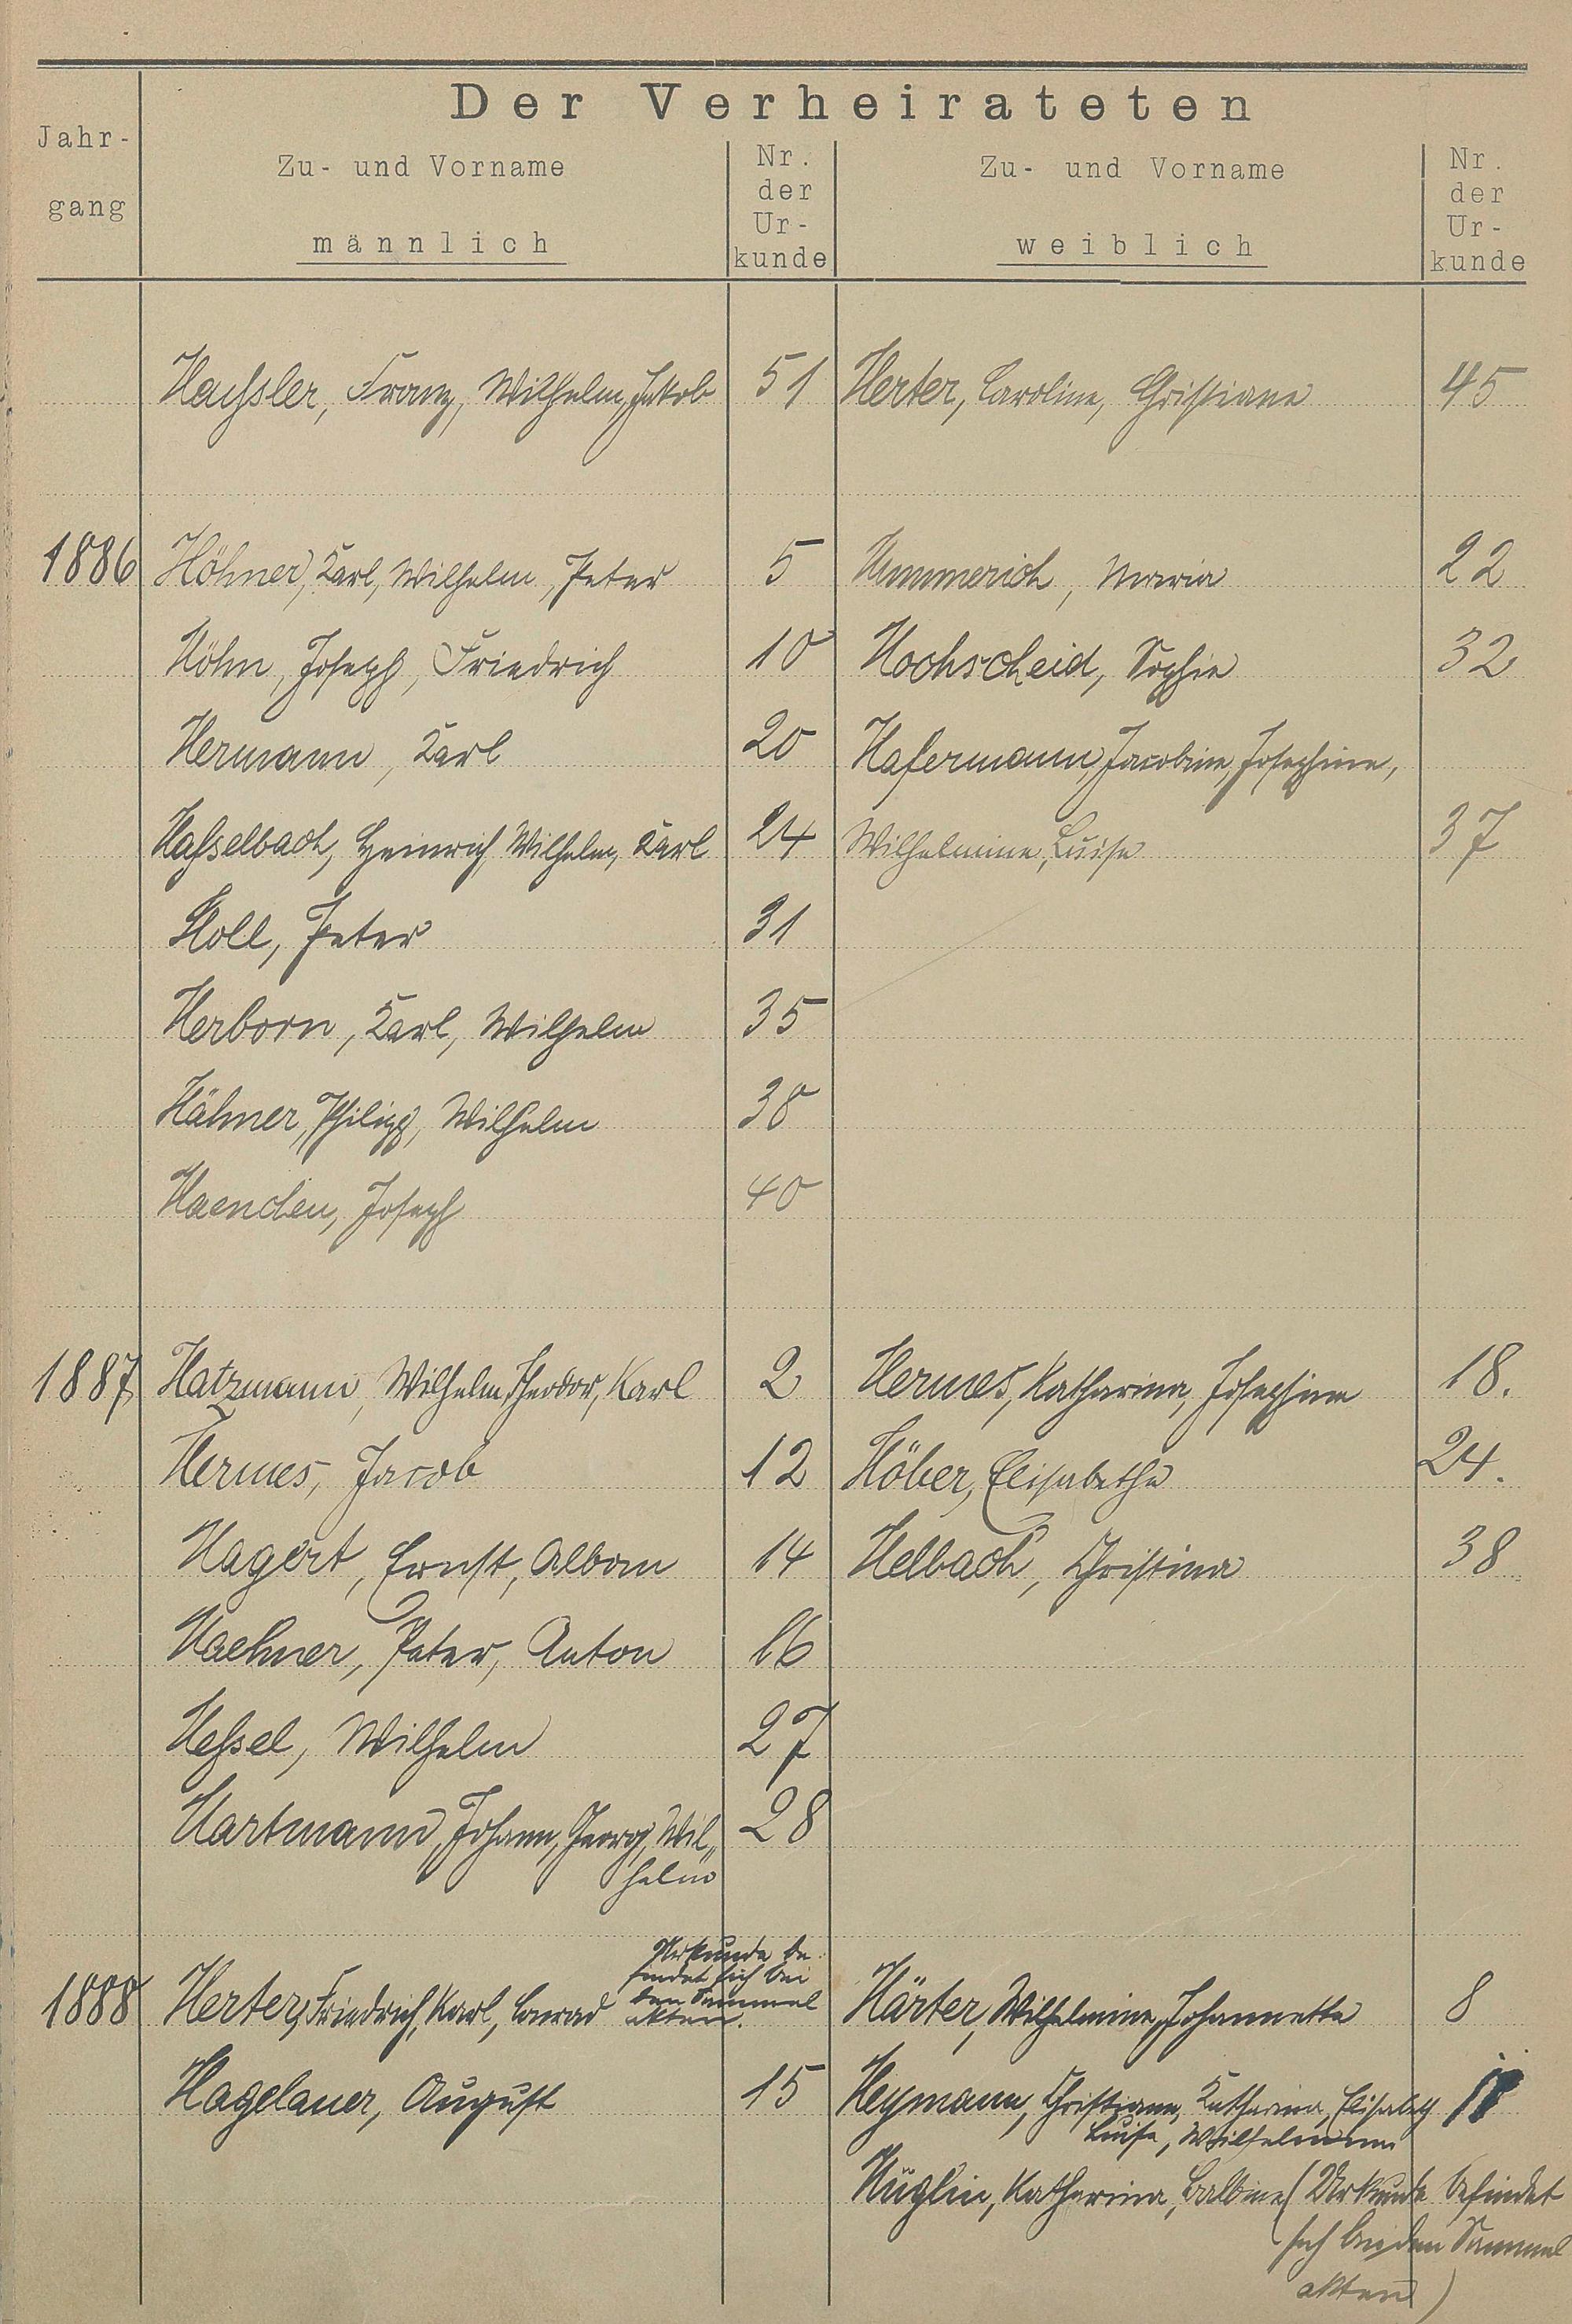 Der Verheirateten
Jahr-
gang
Zu- und Vorname
männlich
Nr.
der
Ur-
kunde
Zu- und Vorname
weiblich
Nr.
der
Ur-
kunde
Haeßler, Franz, Wilhelm, Jakob 51 Herter, Caroline, Christiane 45
1886 Höhner, Karl, Wilhelm, Peter 5 Hummerich, Maria 22
Höhn, Joseph, Friedrich 10 Hochscheid, Sophie 32
Hermann, Karl 20 Hafermann, Jacobine, Josephine,
Haßselbach, Heinrich, Wilhelm, Karl 24 Wilhelmine, Luise 37
Holl, Peter 31
Herborn, Karl, Wilhelm 35
Hähner, Philipp, Wilhelm 38
Haenchen, Joseph 40
1887 Hatzmann, Wilhelm, Theodor, Karl 2 Hermes, Katharina, Josephine 18.
Hermes, Jacob 12 Höber, Elisabetha 24.
Hagert, Ernst, Alban 14 Helbach, Christina 38
Haehner, Peter, Anton 16
Heßsel, Wilhelm 27
Hartmann, Johann, Georg, Wil„ 28
helm
Urkunde be
findet sich bei
den Sammel
akten.
1888 Herter, Friedrich, Karl, Conrad Härter, Wilhelmine, Johannette 8
Hagelauer, August 15 Heymann, Christiane, Katharina, Elisabeth 11
Luise, Wilhelmine
Hüglin, Katharina, Balbine (Urkunde befindet
sich bei den Sammel
akten)